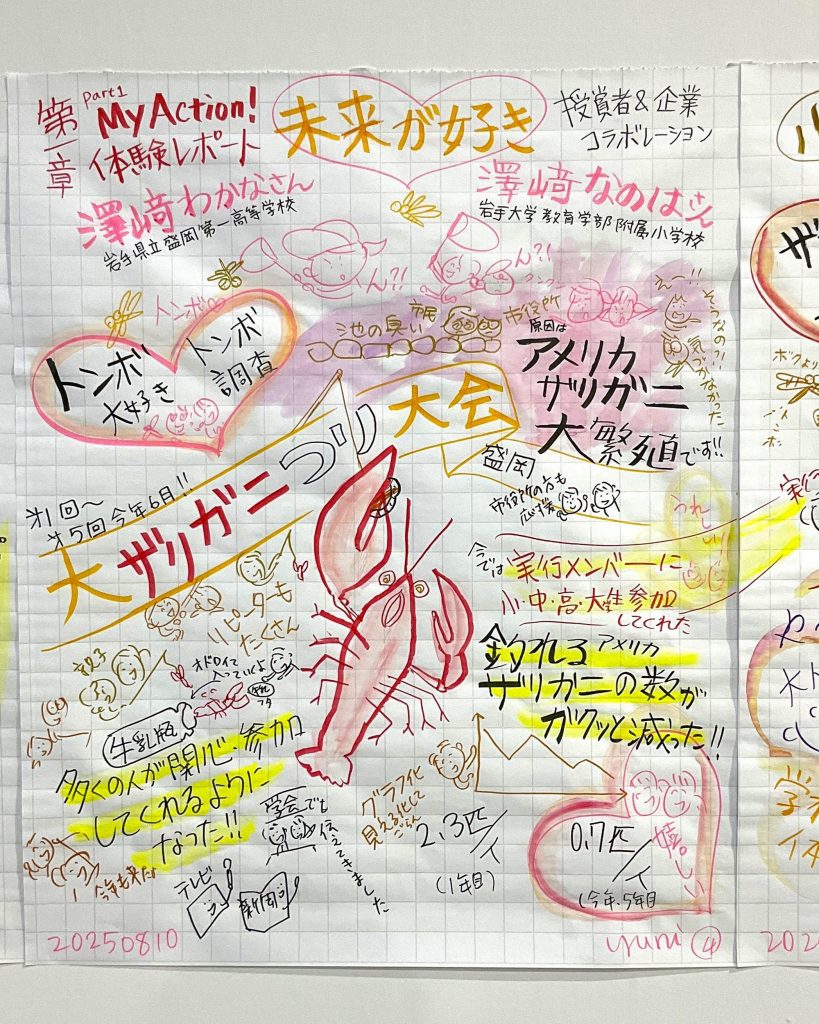 第一章
Part1
My Action!
体験レポート
未来が好き
授賞者&企業
コラボレーション
澤﨑わかなさん
岩手県立盛岡第一高等学校
澤﨑なのはさん
岩手大学教育学部附属小学校
ん?!
ん?!
クンクン
トンボ♡
トンボ
大好き
トンボ
調査
池の臭い
市民
市役所
原因は
アメリカ
ザリガニ
大繁殖です!!
えー!!
そうなの?!
気づかなかった
オ1回〜
オ5回今年6月!!
大ザリガニつり
大会
盛岡
市役所の方も
応援
うれしい!
今では
実行メンバーに
小・中・高・大生参加
してくれた
釣れるアメリカ
ザリガニの数が
ガクッと減った!!
リピーターも
たくさん
親子
オドロイて
入っていくよ
牛乳
フタ
牛乳瓶
多くの人が関心・参加
してくれるように
なった!!
今年も来た!
学会でも
伝えてきました
テレビ
新聞
グラフ化
見える化して
ごらん
2.3匹/人
(1年目)
0.7匹/人
(今年、5年目
嬉しい
20250810
yuni ④
ザ
実行
202